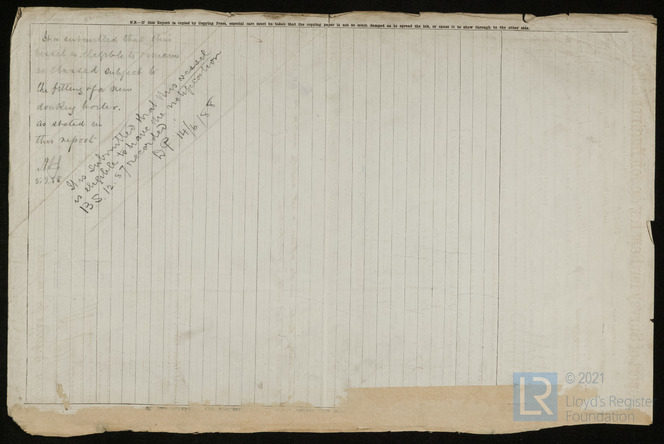 N.B.—If this Report is copied by Copying Press, especial care must be taken that the copying paper is not so much damped as to spread the ink, or cause it to show through to the other side.
It is submitted that this
vessel is eligible to remain
as classed subject to
the fitting of a new
donkey boiler.
as stated in
this report
It is submitted that this vessel
is eligible to have the notification
B.S. 12.87 recorded.
DP 14/6/88
LR
© 2021
Lloyd's Register
Foundation